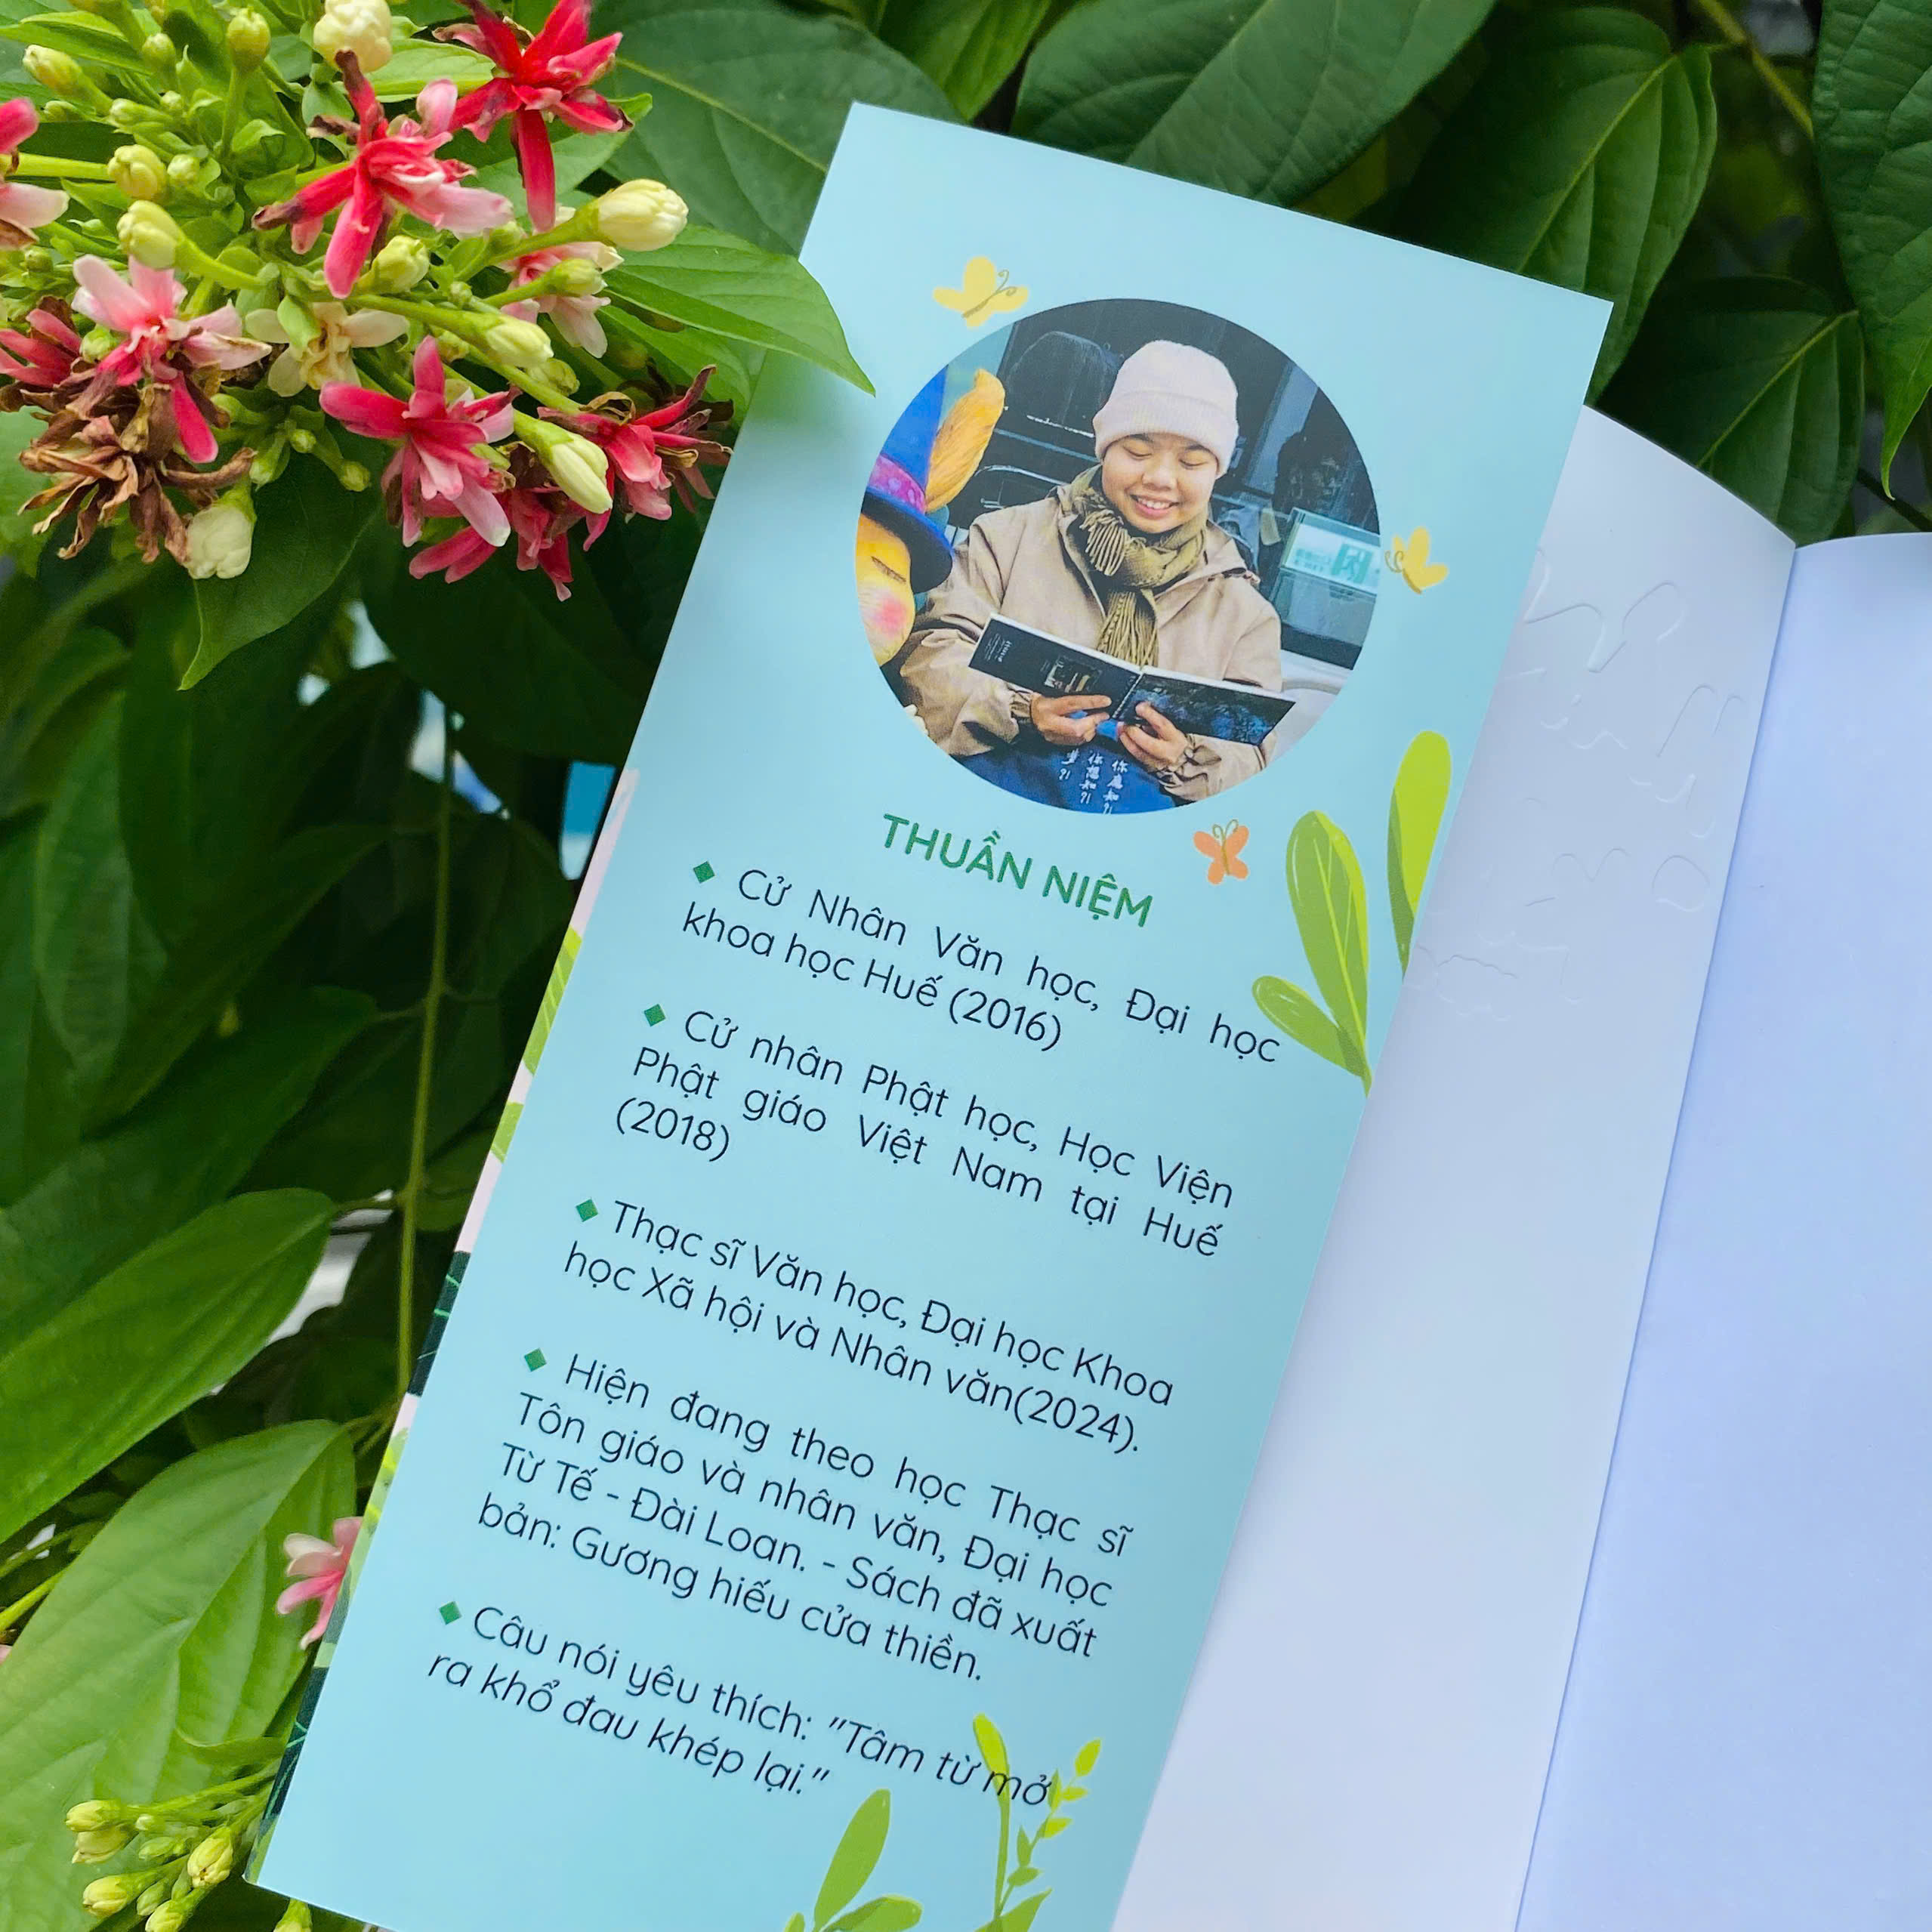 THUẦN NIỆM
Cử Nhân Văn học, Đại học
khoa học Huế (2016)
Cử nhân Phật học, Học Viện
Phật giáo Việt Nam tại Huế
(2018)
Thạc sĩ Văn học, Đại học Khoa
học Xã hội và Nhân văn(2024).
Hiện đang theo học Thạc sĩ
Tôn giáo và nhân văn, Đại học
Từ Tế - Đài Loan. - Sách đã xuất
bản: Gương hiếu cửa thiền.
Câu nói yêu thích: "Tâm từ mở
ra khổ đau khép lại."